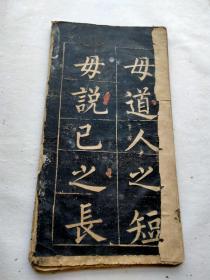 毋道人之短
毋說己之長